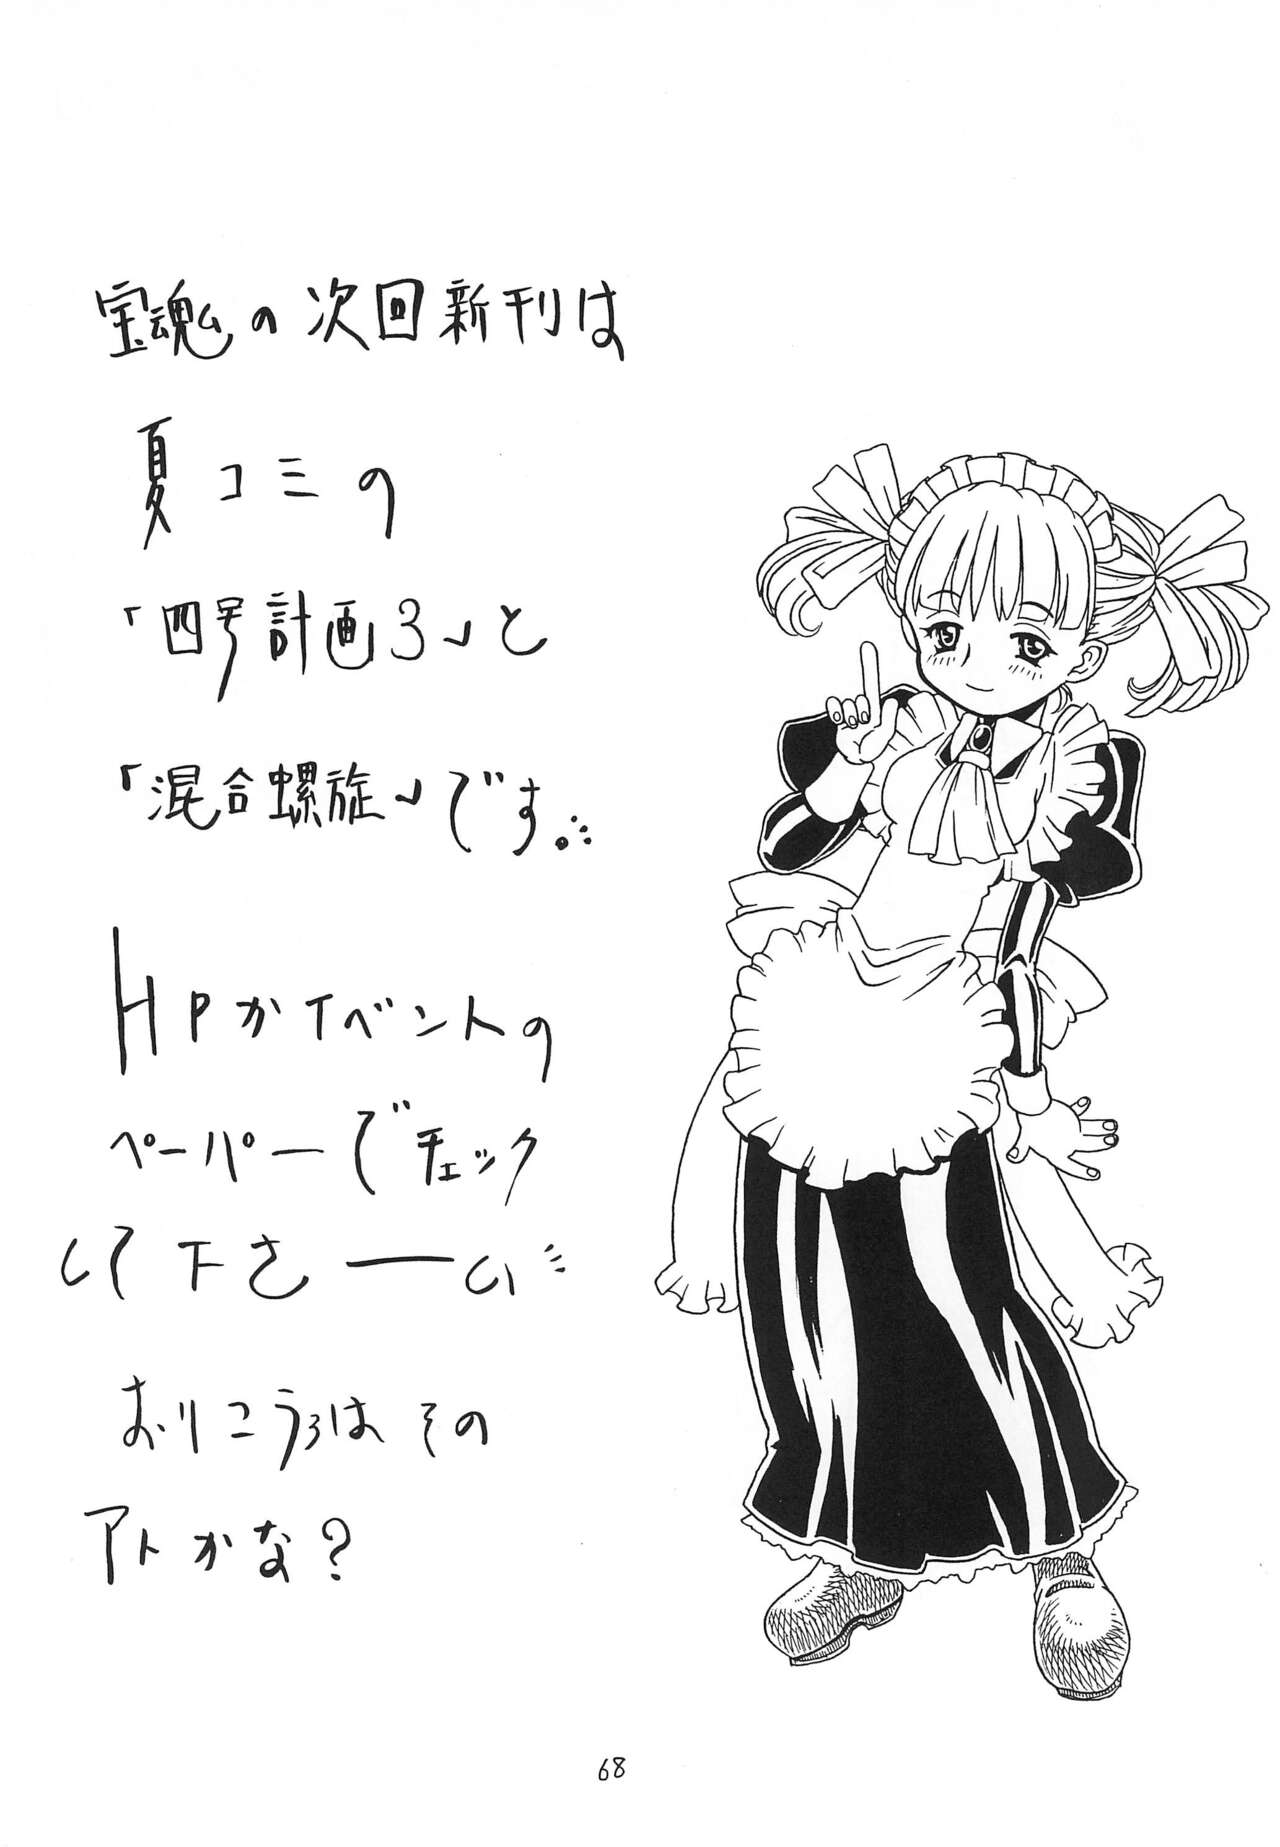 宝魂の次回新刊は
夏コミの
「四号計画3」と
「混合螺旋」です。
HPかイベントの
ペーパーでチェック
して下さーい
おりこうろはその
アトかな?
68